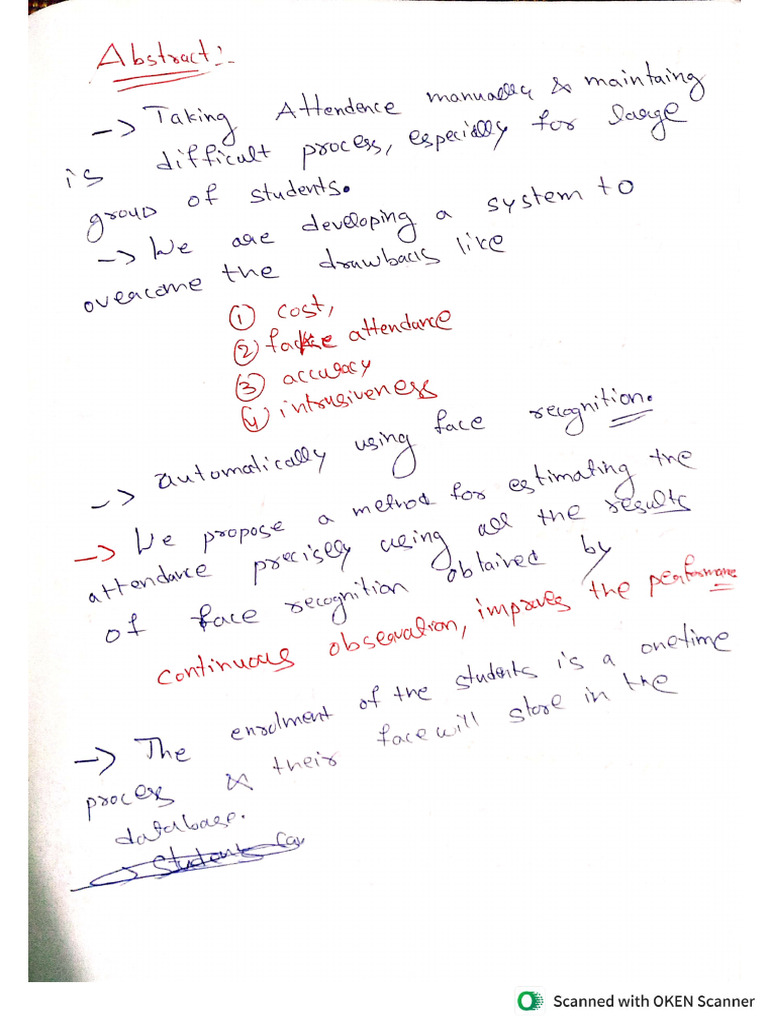 Abstract:-
-> Taking Attendence manually & maintaing
is difficult process, especially for large
group of students.
-> We are developing a system to
overcome the drawbacks like
① cost,
② fake attendance
③ accuracy
④ intrusiveness
-> automatically using face recognition.
-> We propose a method for estimating the
attendance precisely using all the results
of face recognition obtained by
continuous observation, improves the performance
-> The enrolment of the students is a onetime
process & their face will store in the
database.
-> Students can
Scanned with OKEN Scanner